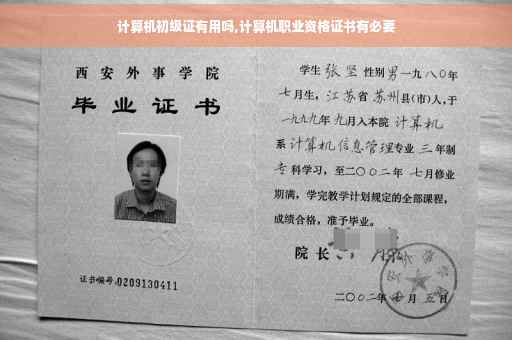 计算机初级证有用吗,计算机职业资格证书有必要
西安外事学院
毕业证书
证书编号:0209130411
学生 张坚 性别 男 一九八〇年
七月生, 江苏省 苏州县(市)人,于
一九九九年 九月入本院 计算机
系 计算机信息管理专业 三 年制
专 科学习, 至二〇〇二年 七月修业
期满, 学完教学计划规定的全部课程,
成绩合格, 准予毕业。
院长
二〇〇二年 月 五日